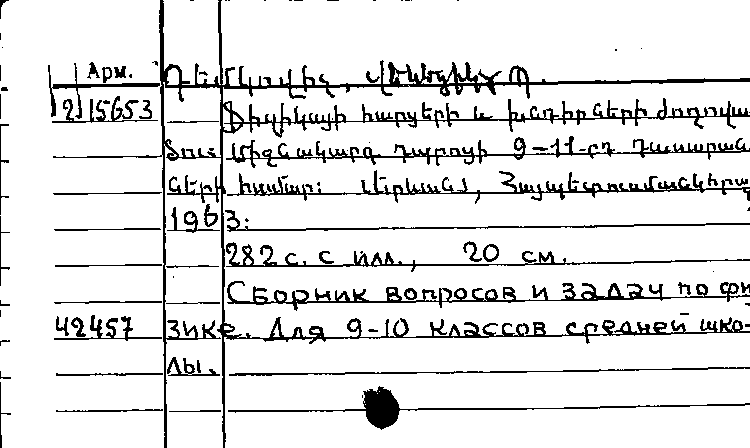 Арм.
Դեմկովիչ, Վ. Պ.
2 15653 Ֆիզիկայի հարցերի և խնդիրների ժողովա
ծու: Միջնակարգ դպրոցի 9-11-րդ դասարան
ների համար: Երևան, Հայպետուսմանկհրա
1963:
282 с. с илл., 20 см.
Сборник вопросов и задач по фи
42457 зике. Для 9-10 классов средней шко-
лы.